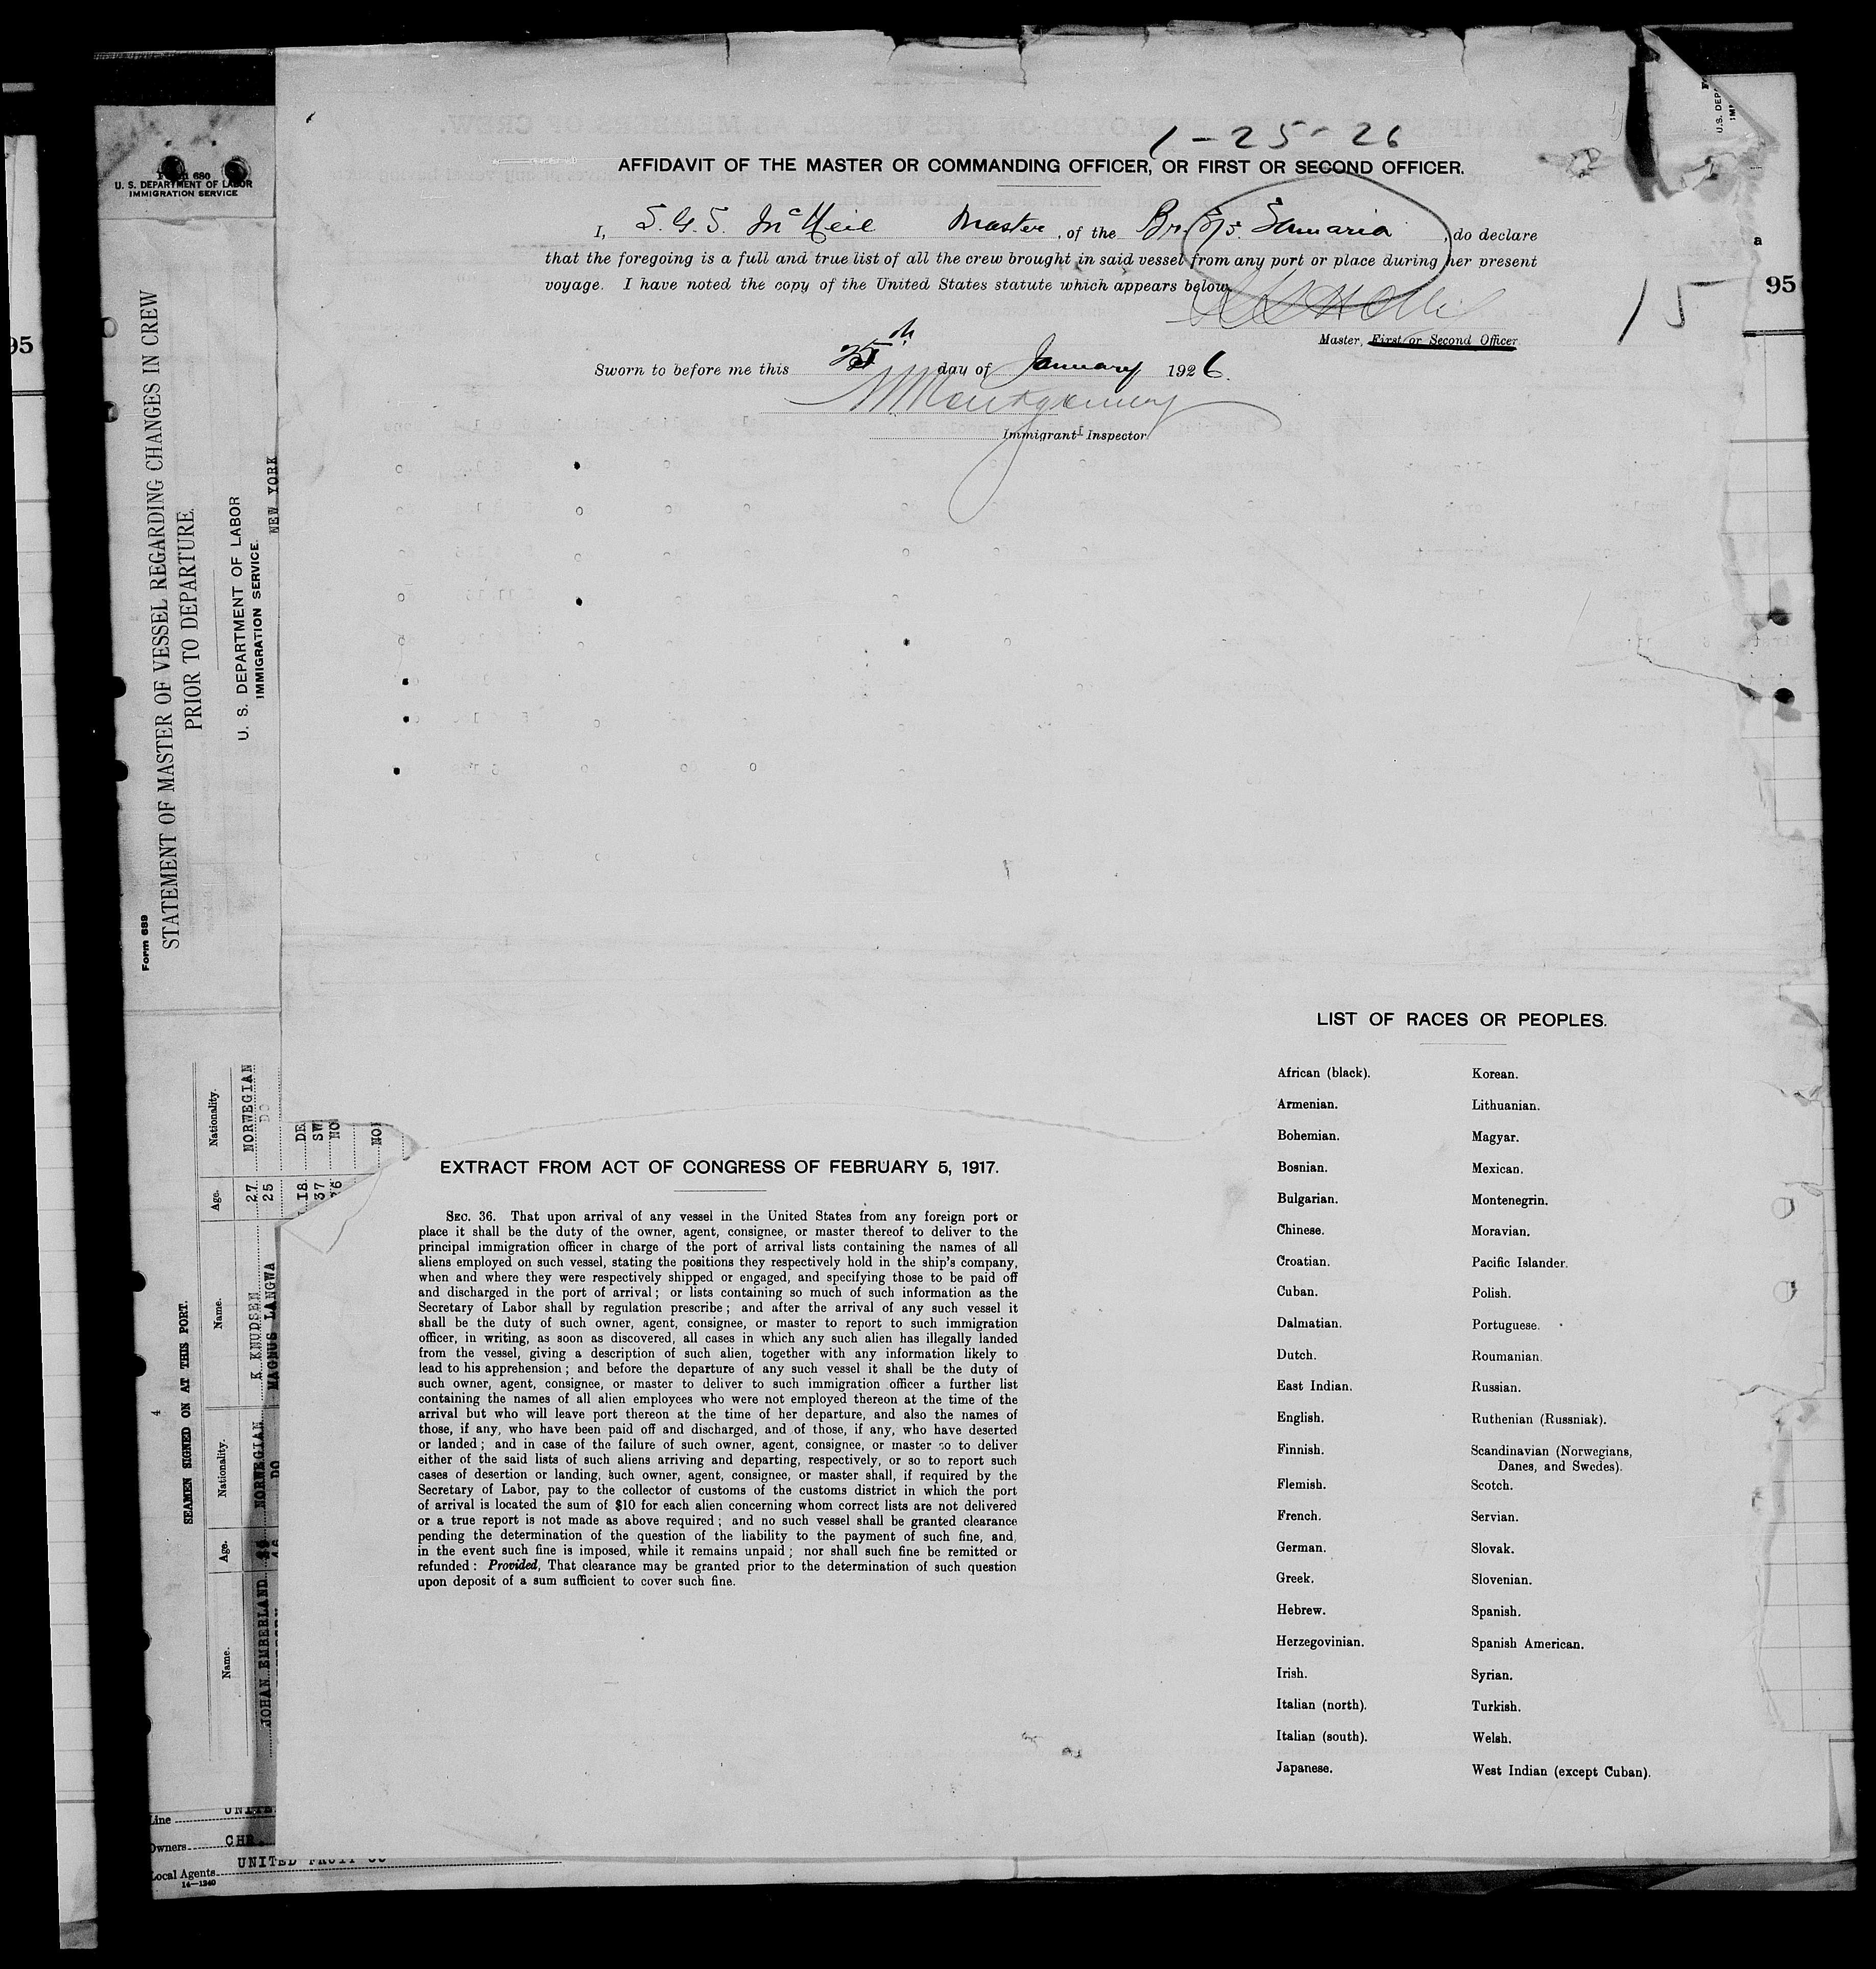 1-25-26
AFFIDAVIT OF THE MASTER OR COMMANDING OFFICER, OR FIRST OR SECOND OFFICER.
I, S. G. S. McNeil Master, of the Br. S/S. Samaria, do declare
that the foregoing is a full and true list of all the crew brought in said vessel from any port or place during her present
voyage. I have noted the copy of the United States statute which appears below.
15
Master, First or Second Officer
Sworn to before me this 25th day of January 1926.
Montgomery
Immigrant Inspector
LIST OF RACES OR PEOPLES.
African (black).
Armenian.
Bohemian.
Bosnian.
Bulgarian.
Chinese.
Croatian.
Cuban.
Dalmatian.
Dutch.
East Indian.
English.
Finnish.
Flemish.
French.
German.
Greek.
Hebrew.
Herzegovinian.
Irish.
Italian (north).
Italian (south).
Japanese.
Korean.
Lithuanian.
Magyar.
Mexican.
Montenegrin.
Moravian.
Pacific Islander.
Polish.
Portuguese.
Roumanian.
Russian.
Ruthenian (Russniak).
Scandinavian (Norwegians,
Danes, and Swedes).
Scotch.
Servian.
Slovak.
Slovenian.
Spanish.
Spanish American.
Syrian.
Turkish.
Welsh.
West Indian (except Cuban).
EXTRACT FROM ACT OF CONGRESS OF FEBRUARY 5, 1917.
SEC. 36. That upon arrival of any vessel in the United States from any foreign port or
place it shall be the duty of the owner, agent, consignee, or master thereof to deliver to the
principal immigration officer in charge of the port of arrival lists containing the names of all
aliens employed on such vessel, stating the positions they respectively hold in the ship's company,
when and where they were respectively shipped or engaged, and specifying those to be paid off
and discharged in the port of arrival; or lists containing so much of such information as the
Secretary of Labor shall by regulation prescribe; and after the arrival of any such vessel it
shall be the duty of such owner, agent, consignee, or master to report to such immigration
officer, in writing, as soon as discovered, all cases in which any such alien has illegally landed
from the vessel, giving a description of such alien, together with any information likely to
lead to his apprehension; and before the departure of any such vessel it shall be the duty of
such owner, agent, consignee, or master to deliver to such immigration officer a further list
containing the names of all alien employees who were not employed thereon at the time of the
arrival but who will leave port thereon at the time of her departure, and also the names of
those, if any, who have been paid off and discharged, and of those, if any, who have deserted
or landed; and in case of the failure of such owner, agent, consignee, or master so to deliver
either of the said lists of such aliens arriving and departing, respectively, or so to report such
cases of desertion or landing, such owner, agent, consignee, or master shall, if required by the
Secretary of Labor, pay to the collector of customs of the customs district in which the port
of arrival is located the sum of $10 for each alien concerning whom correct lists are not delivered
or a true report is not made as above required; and no such vessel shall be granted clearance
pending the determination of the question of the liability to the payment of such fine, and,
in the event such fine is imposed, while it remains unpaid; nor shall such fine be remitted or
refunded: Provided, That clearance may be granted prior to the determination of such question
upon deposit of a sum sufficient to cover such fine.
Form 680
U. S. DEPARTMENT OF LABOR
IMMIGRATION SERVICE
Form 689
STATEMENT OF MASTER OF VESSEL REGARDING CHANGES IN CREW
PRIOR TO DEPARTURE.
U. S. DEPARTMENT OF LABOR
IMMIGRATION SERVICE
NEW YORK
4
SEAMEN SIGNED ON AT THIS PORT.
Name. Age. Nationality. Name. Age. Nationality.
JOHAN EMBERLAND NORWEGIAN K KNUDSEN 27 NORWEGIAN
DO MAGNUS LANGWA 25 DO
18 DE
37 SW
NO
NO
Line UNITE
Owners CHR.
Local Agents UNITED FRUIT CO
14-1240
95
a
95
U.S. DEP
IM